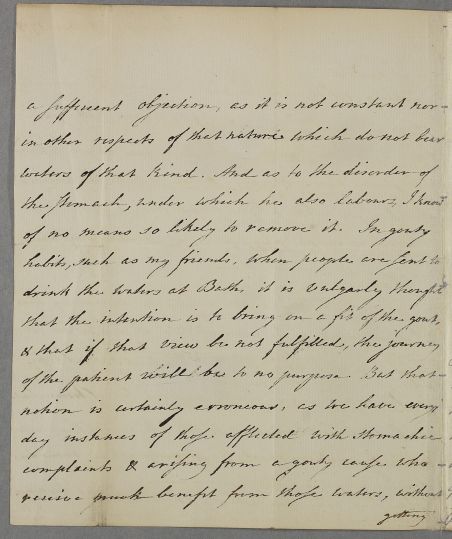 a sufficient objection, as it is not constant nor
in other respects of that nature which do not bear
waters of that kind. And as to the disorder of
the stomach, under which he also labours, I know
of no means so likely to remove it. In gouty
habits, such as my friends, when people are sent to
drink the waters at Bath, it is vulgarly thought
that the intention is to bring on a fit of the gout,
& that if that view be not fulfilled, the journey
of the patient will be to no purpose. But that
notion is certainly erroneous, as we have every
day instances of those afflicted with stomachic
complaints & arising from a gouty cause who
receive much benefit from those waters, without
getting